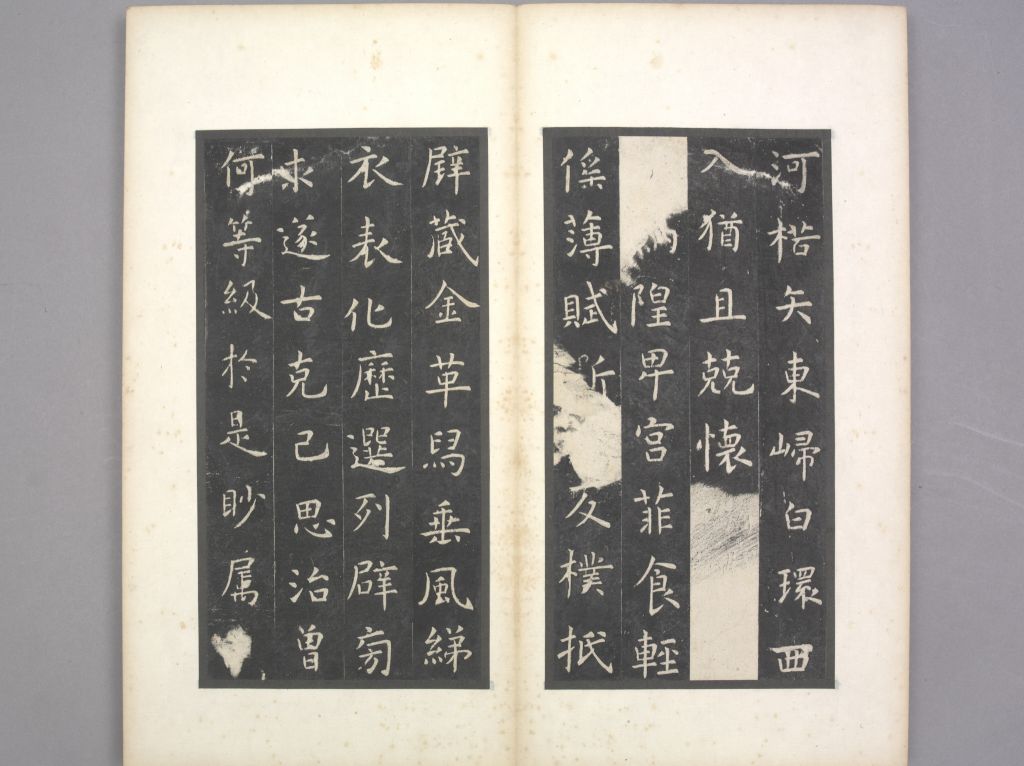 河楛矢東歸白環西
入猶且兢懷
隍卑宮菲食輕
傜薄賦斲反樸抵
璧藏金革舄垂風綈
衣表化歷選列辟旁
求遂古克己思治曾
何等級於是眇屬